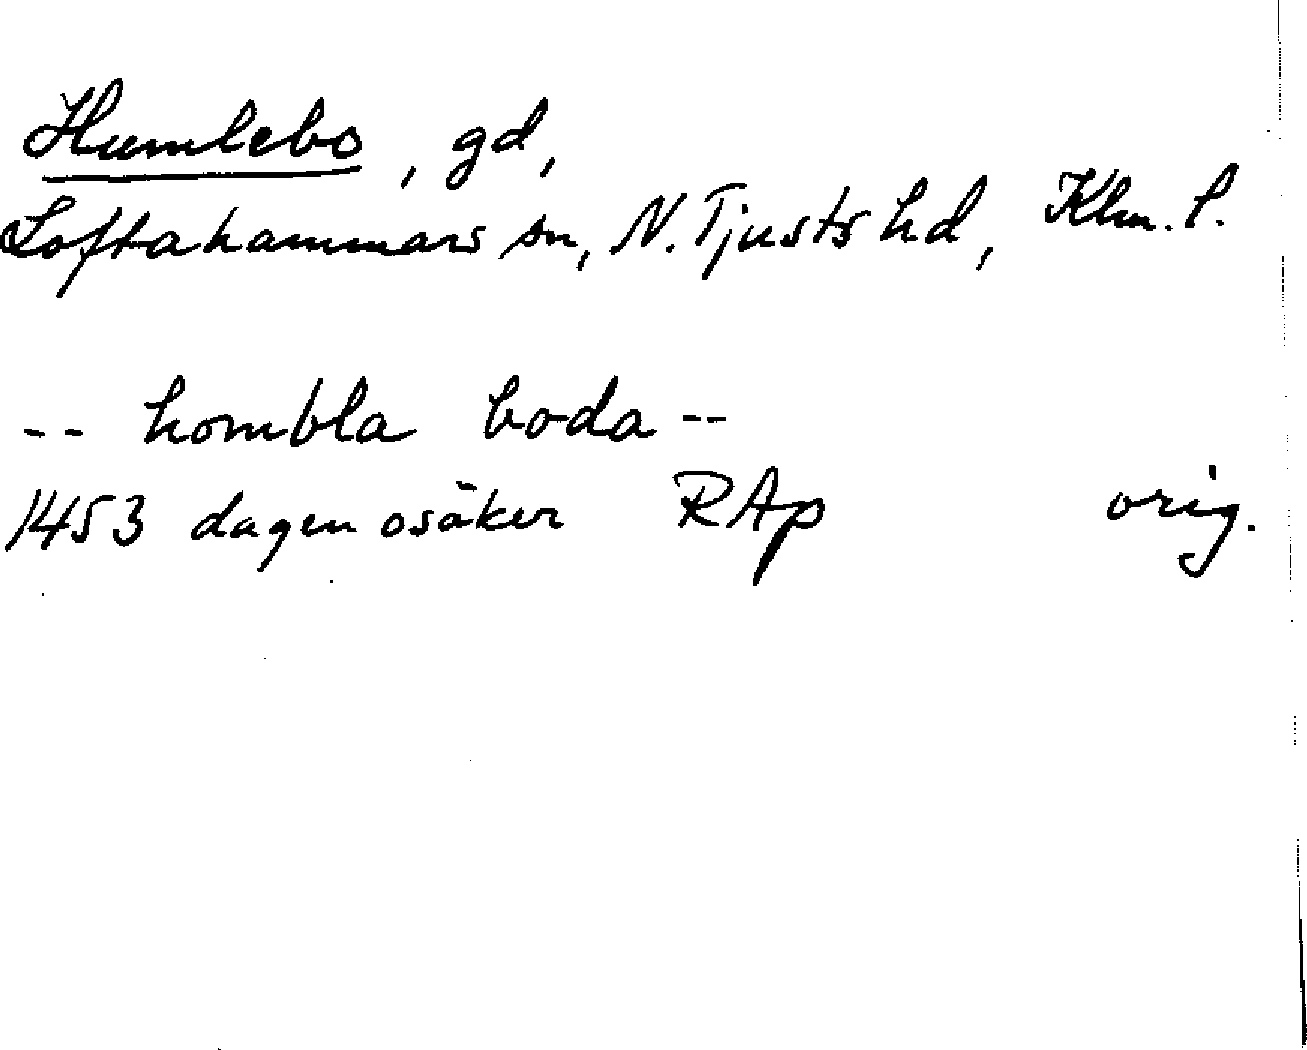 Humlebo, gd,
Loftahammars sn, N. Tjusts hd, Klm. l.
-- hombla boda --
1453 dagen osäker RAp orig.